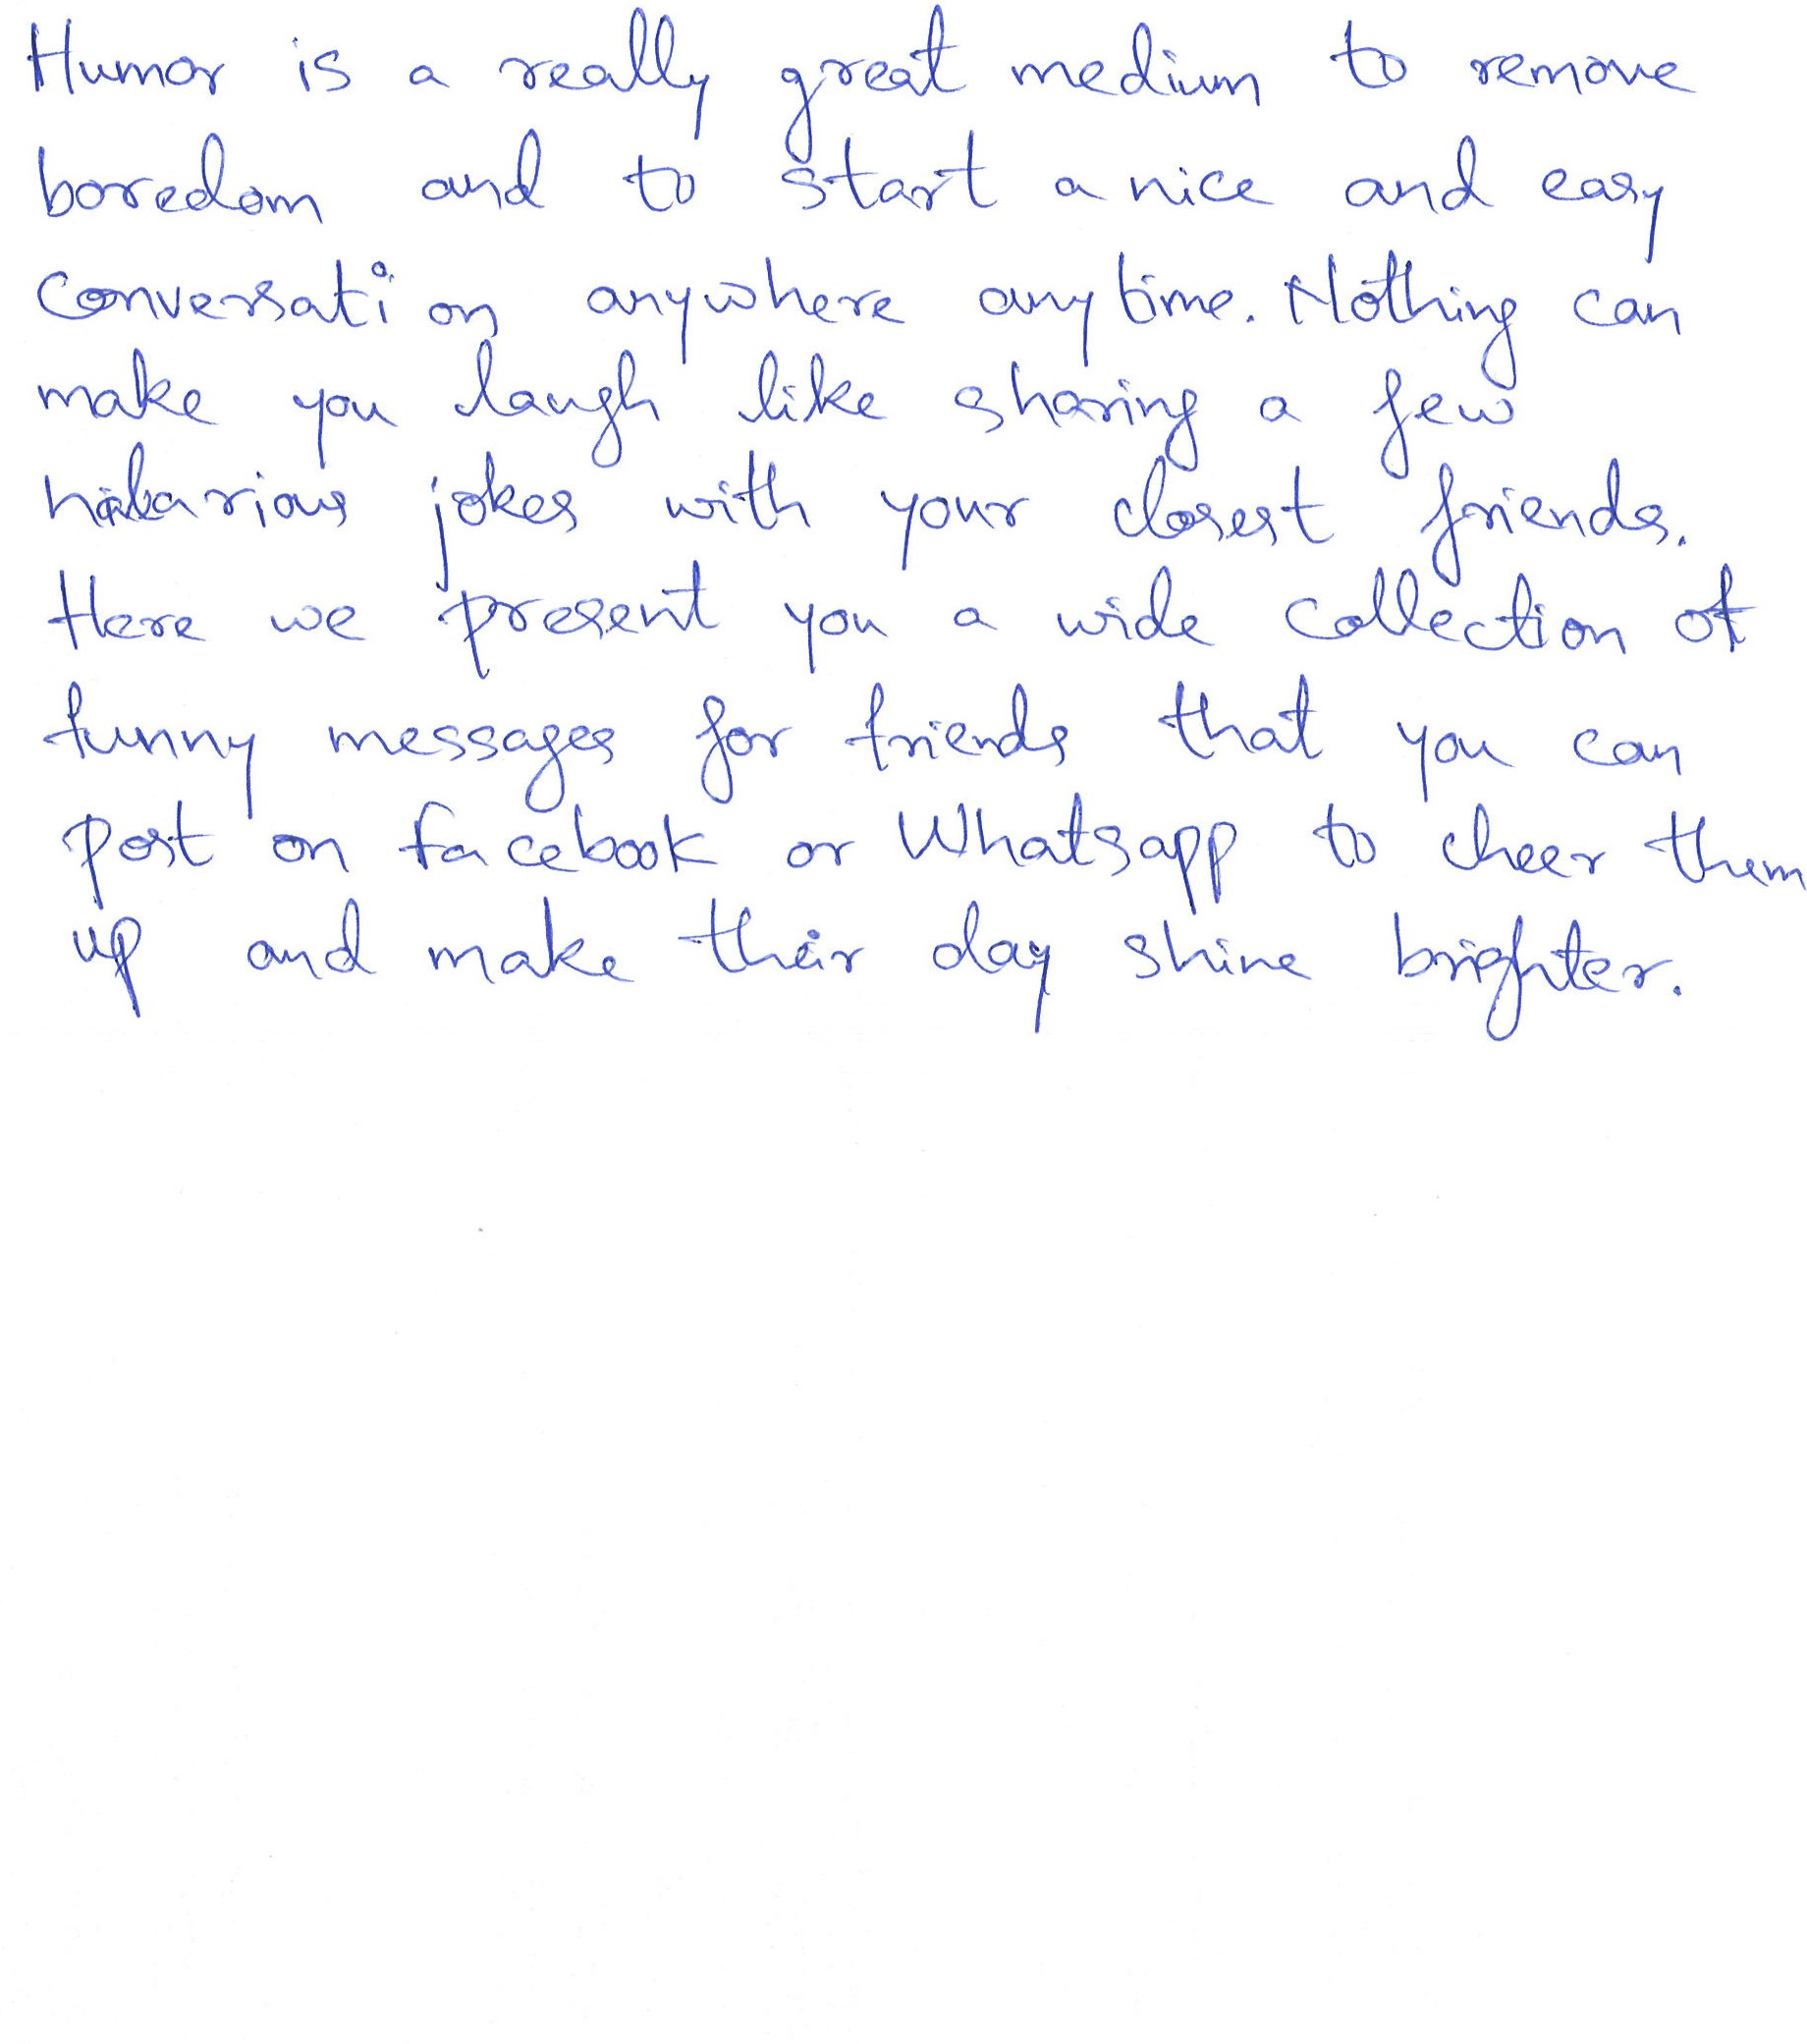 Humor is a really great medium to remove
boredom and to start a nice and easy
conversation anywhere anytime. Nothing can
make you laugh like sharing a few
hilarious jokes with your closest friends.
Here we present you a wide collection of
funny messages for friends that you can
post on facebook or Whatsapp to cheer them
up and make their day shine brighter.